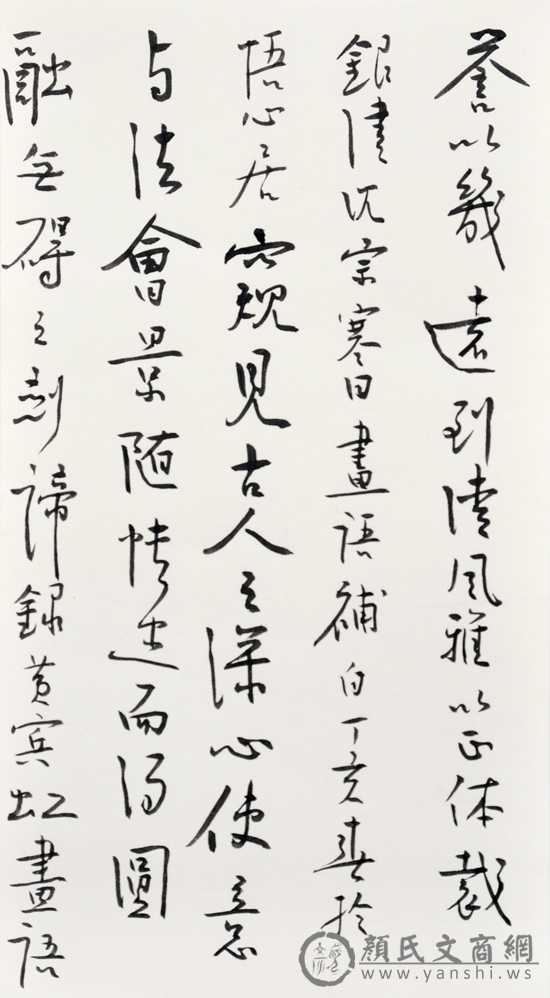 誉以幾遠到親風雅以正体裁
録清沈宗騫曰畫語補白丁亥春於
悟心居窺見古人之深心使意
与法會景随情造而得圓
融無碍之妙諦録黄賓虹畫語
顔氏文商網
www.yanshi.ws